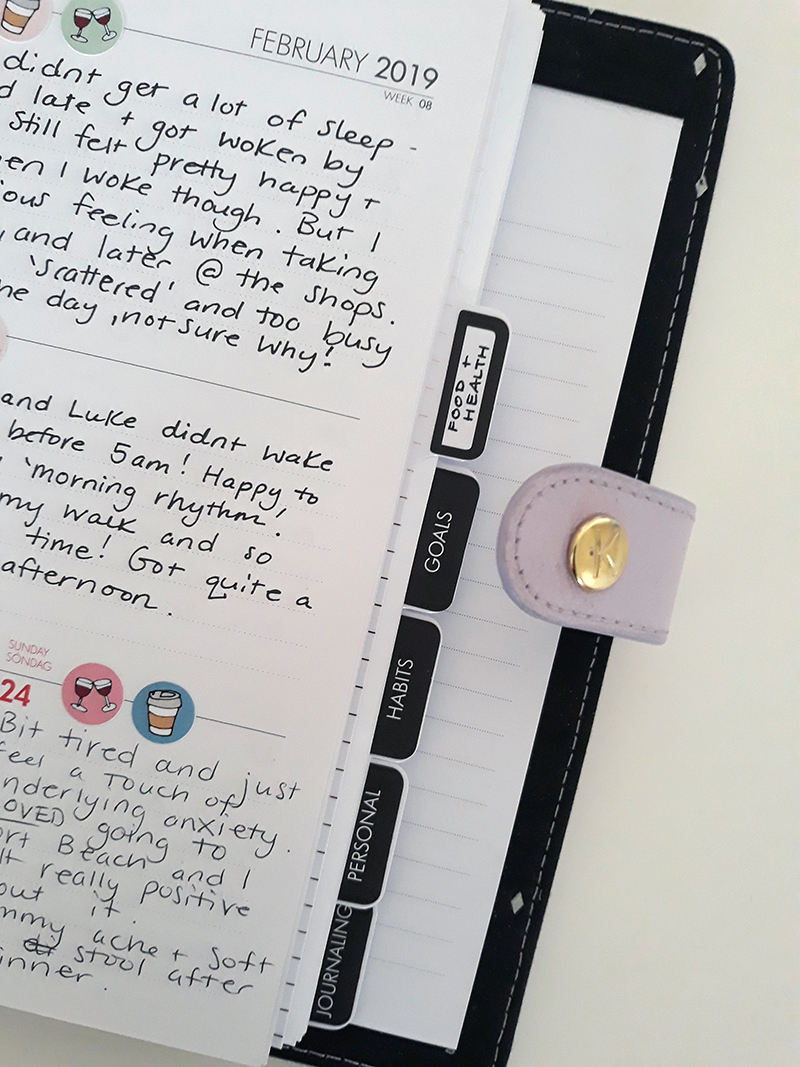 FEBRUARY 2019
WEEK 08
didnt get a lot of sleep -
late + got woken by
Still felt pretty happy +
I woke though. But I
feeling when taking
, and later @ the shops.
'scattered' and too busy
day, not sure why!
and Luke didnt wake
before 5am! Happy to
'morning rhythm'.
my walk and so
time! Got quite a
afternoon.
SUNDAY
SÖNDAG
24
Bit tired and just
feel a touch of
underlying anxiety.
LOVED going to
Beach and I
really positive
it.
ache + soft
stool after
dinner.
FOOD +
HEALTH
GOALS
HABITS
PERSONAL
JOURNALING
K